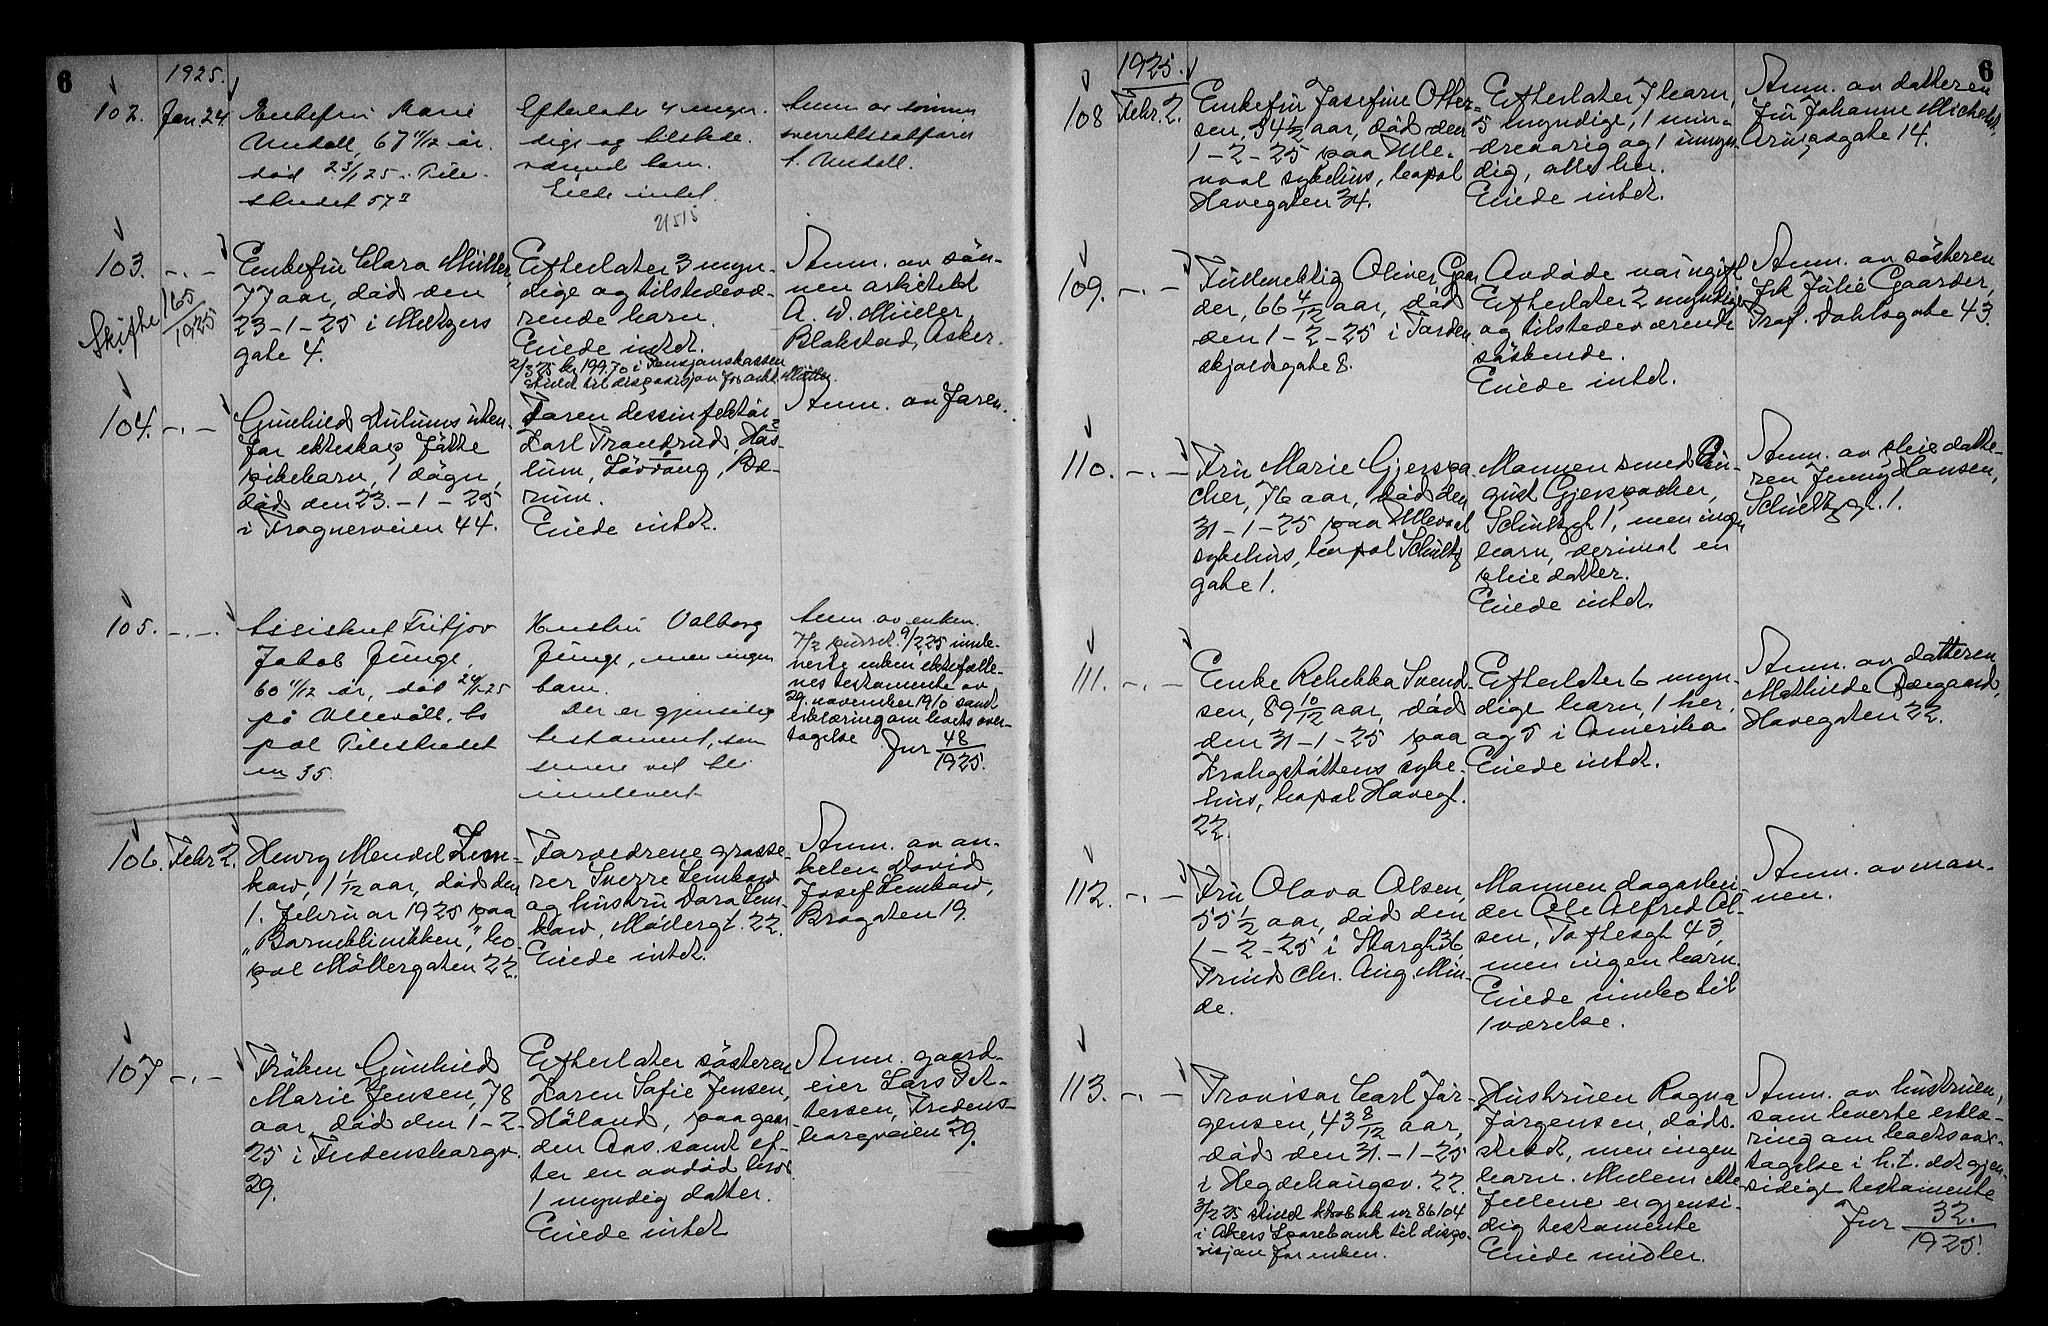 6
1925.
102. Jan 24.
Enkefru Marie
67 11/12 år.
død 23/1 25 i Pile-
stredet 57
Efterlater 4 myn-
dige og tilstede-
værende barn.
Eiede intet.
21515
Anm. av sønnen
103. -.-
Skifte 165/1925
Enkefru Clara Müller,
77 aar, død den
23-1-25 i Meltzers
gate 4.
Efterlater 3 myn-
dige og tilstedevæ-
rende barn.
Eiede intet.
2/3 25 kr 199.70 i Pensjonskassen
stillet til disposisjon for arkt. Müller.
Anm. av søn-
nen arkitekt
A. W. Müller,
Blakstad, Asker.
104. -.-
Gunhild uten-
for ekteskap fødte
pikebarn, 1 døgn,
død den 23.-1-25
i Frognerveien 44.
Faren dessinfektør
Karl Trandrud, Has-
lum, Bæ-
rum.
Eiede intet.
Anm. av faren.
105. -.-.
Assistent Fritjov
Jakob Junge,
60 11/12 år, død 24/1-25
på Ullevål, bo-
pæl Pilestredet
35.
Hustru Valborg
Junge, men ingen
barn.
Der er gjensidig
testament, som
senere vil bli
innlevert
Anm. av enken.
9/2 25 innle-
verte enken ektefelle-
nes testamente av
29. november 1910 samt
erklæring om boets over-
tagelse
Jnr 48/1925.
106. Febr 2.
Henry Mendel Lem-
kow, 1 1/12 aar, død den
1. februar 1925 paa
"Barneklinikken", bo-
pæl Møllergaten 22.
Forældrene grosse-
rer Sverre Lemkow
og hustru Dora Lem-
kow, Møllergt. 22.
Eiede intet.
Anm. av on-
kelen David
Josef Lemkow,
Brogaten 19.
107 -.-
Frøken Gunhild
Marie Jensen, 78
aar, død den 1-2-
25 i Fredensborgv.
29.
Efterlater søsteren
Karen Sofie Jensen,
Høland, paa gaar-
den Aas. samt ef-
ter en avdød bror
1 myndig datter.
Eiede intet
Anm. gaard-
eier Lars Pet-
tersen, Fredens-
borgveien 29.
6
1925.
108 Febr. 2.
Enkefru Josefine Otter-
sen, 54 1/2 aar, død den
1-2-25 paa Ulle-
vaal sykehus, bopæl
Havegaten 34.
Efterlater 7 barn,
5 myndige, 1 min-
dreaarig og 1 umyn-
dig, alle her.
Eiede intet.
Anm. av datteren
fru Johanne Michelet,
14.
109. -.-
Fuldmektig Oliver Gaar-
der, 66 4/12 aar, død
den 1-2-25 i Torden-
skjoldsgate 8.
Avdøde var ugift.
Efterlater 2 myndige
og tilstedeværende
søskende.
Eiede intet.
Anm. av søsteren
frk Julie Gaarder,
Prof. Dahlsgate 43.
110. -.-
Fru Marie Gjerspa-
cher, 76 aar, død den
31-1-25 paa Ullevaal
sykehus, bopæl Schultz
gate 1.
Mannen smed Au-
gust Gjerspacher,
Schultzgt 1, men ingen
barn, derimot en
pleiedatter.
Eiede intet.
Anm. av pleiedatte-
ren Jenny Hansen,
Schultzgt. 1.
111. -.-
Enke Rebekka Svend-
sen, 89 10/12 aar, død
den 31-1-25 paa
Krohgstøttens syke-
hus, bopæl Havegt.
22.
Efterlater 6 myn-
dige barn, 1 her,
og 5 i Amerika
Eiede intet.
Anm. av datteren
Mathilde
Havegaten 22.
112. -.-
Fru Olava Olsen,
55 1/2 aar, død den
1-2-25 i Storgt. 36,
Chr. Aug. Min-
de.
Mannen dagarbei-
der Ole Alfred Ol-
sen, Toftesgt 43,
men ingen barn.
Eiede innbo til
1 værelse.
Anm. av man-
nen.
113. -.-
Provisor Carl Jør-
gensen, 43 8/12 aar,
død den 31.-1-25
i Hegdehaugsv. 22.
3/2 25 stillet kbok nr 86104
i Akers Sparebank til dispo-
sisjon for enken.
Hustruen Ragna
Jørgensen, døds-
stedet, men ingen
barn. Mellem ekte-
fellene er gjensi-
dig testamente
Eiede midler.
Anm. av hustruen,
som leverte erklæ-
ring om boets over-
tagelse i h.t. det gjen-
sidige testamente
Jnr 32./1925.